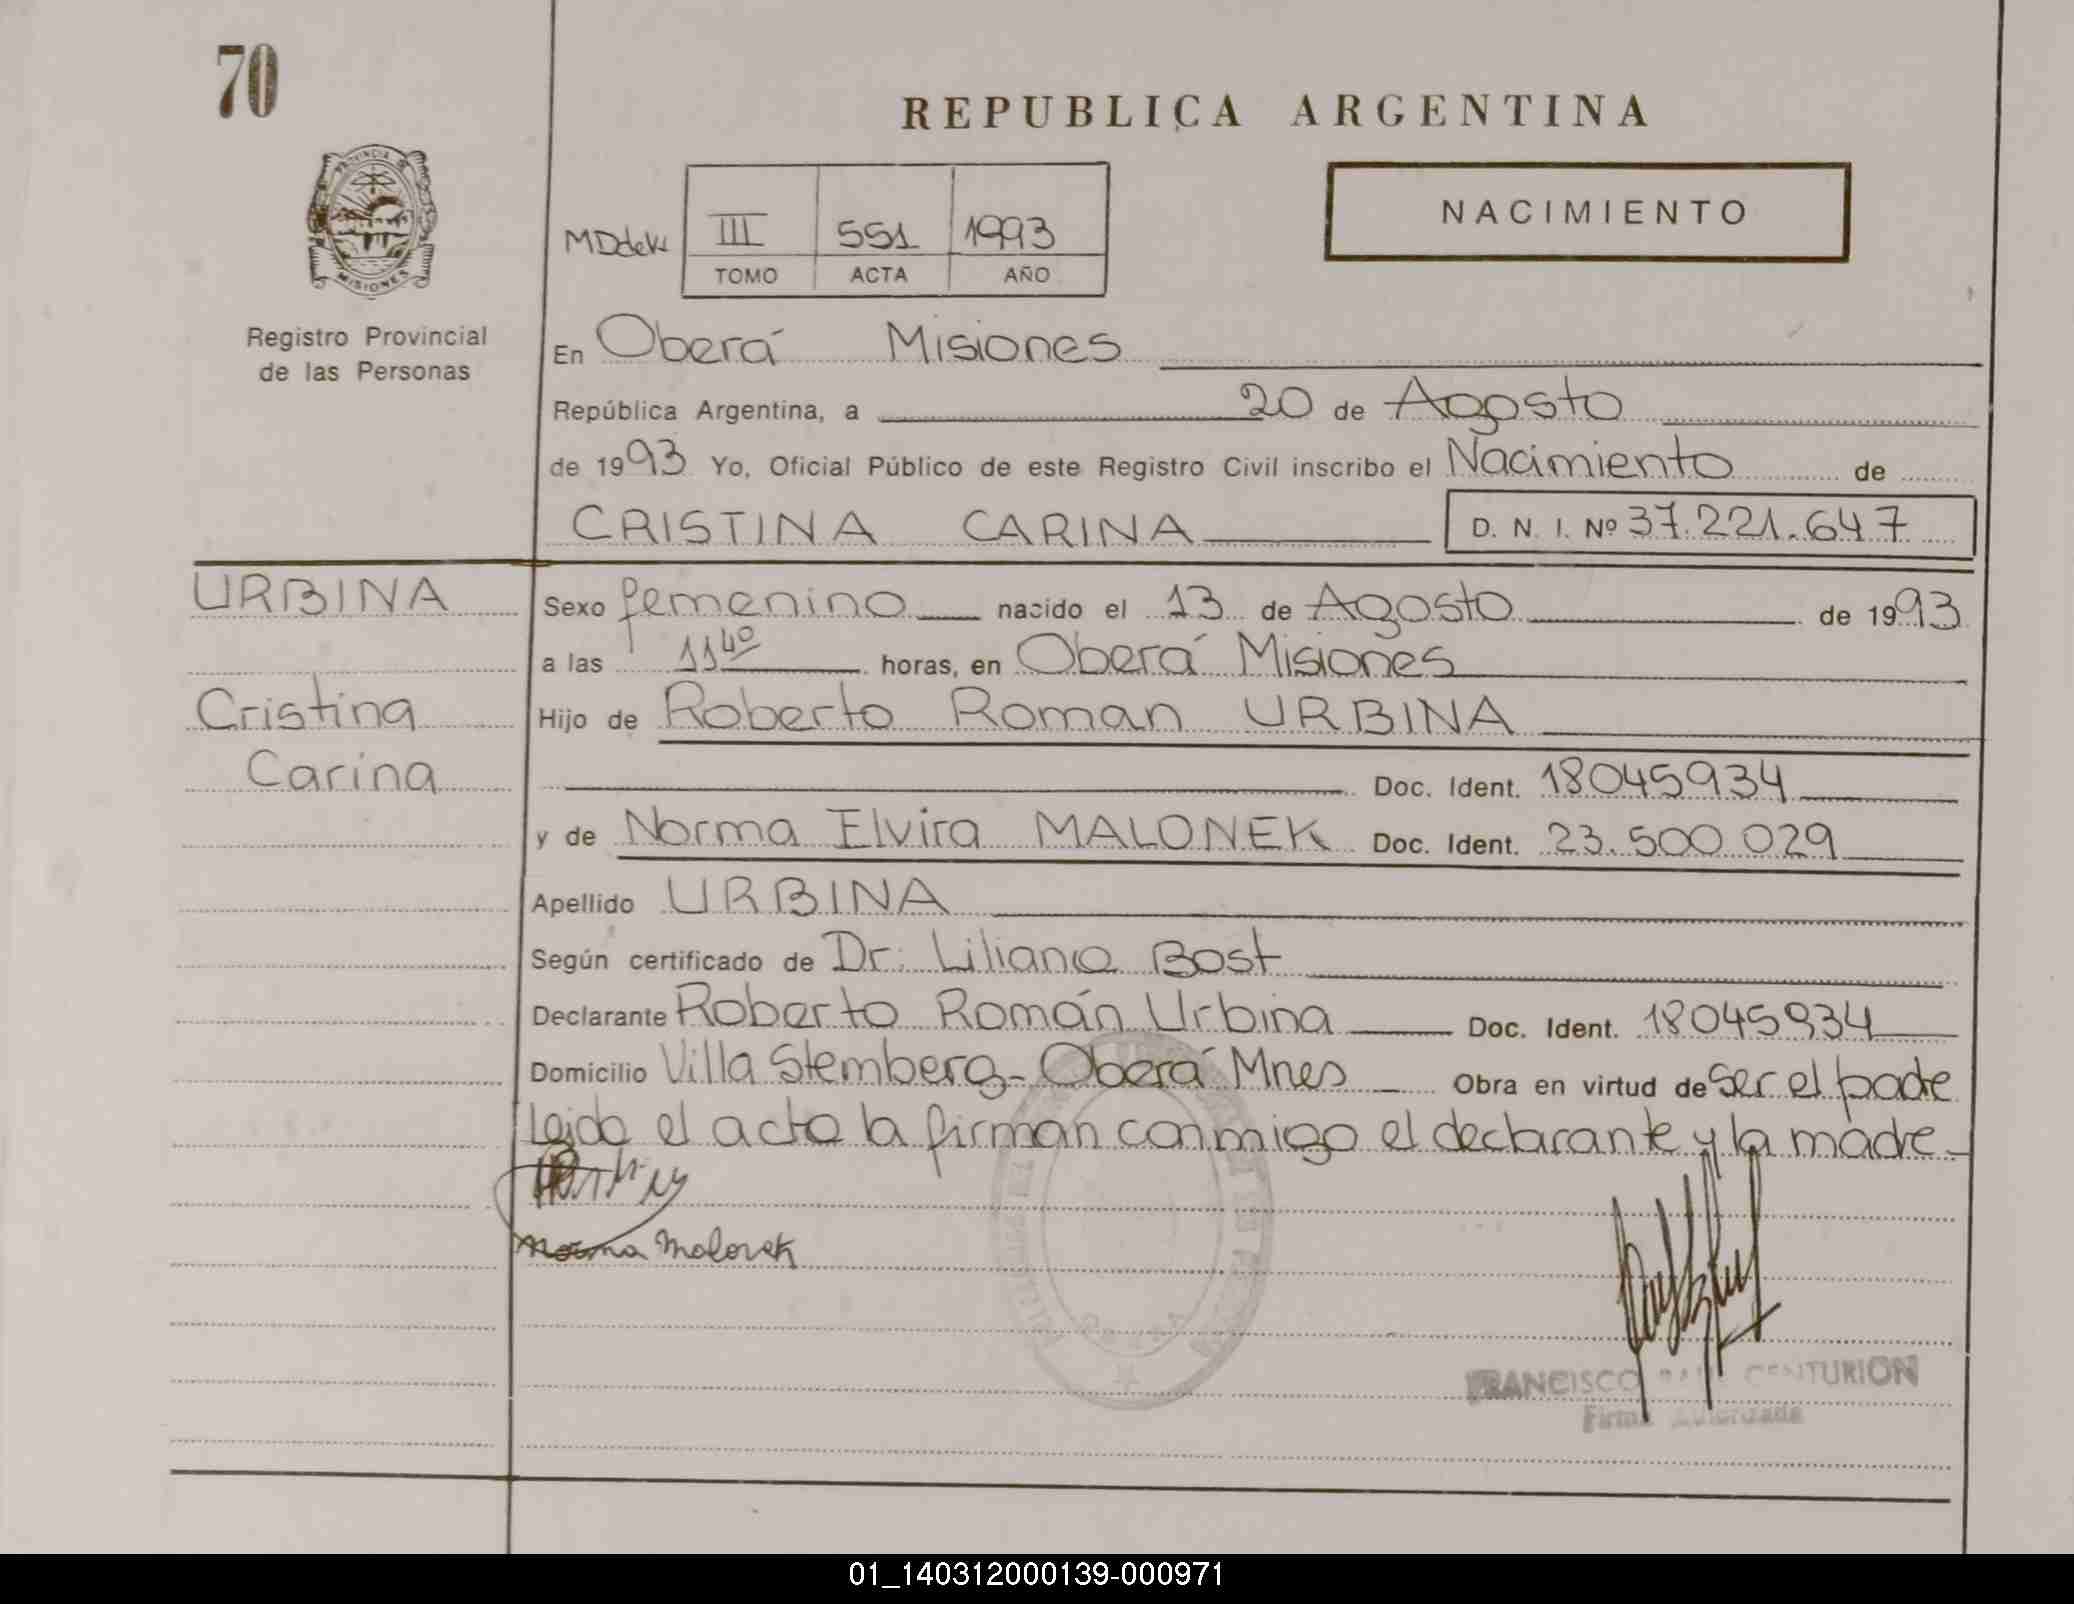 70
REPUBLICA ARGENTINA
NACIMIENTO
PROVINCIA DE
MISIONES
III 551 1993
TOMO ACTA AÑO
Registro Provincial
de las Personas
En Oberá Misiones
República Argentina, a 20 de Agosto
de 1993 Yo, Oficial Público de este Registro Civil inscribo el Nacimiento de
CRISTINA CARINA D. N. I. Nº 37.221.647
URBINA
Cristina
Carina
Sexo femenino nacido el 13 de Agosto de 1993
a las 11 40 horas, en Oberá Misiones
Hijo de Roberto Roman URBINA
Doc. Ident. 18045934
y de Norma Elvira MALONEK Doc. Ident. 23.500 029
Apellido URBINA
Según certificado de Dr: Liliana Bost
Declarante Roberto Román Urbina Doc. Ident. 18045934
Domicilio Villa Stemberg - Oberá Mnes Obra en virtud de Ser el padre
Leida el acta la firman conmigo el declarante y la madre -
Norma Malonek
FRANCISCO CENTURION
Firma Autorizada
01_140312000139-000971